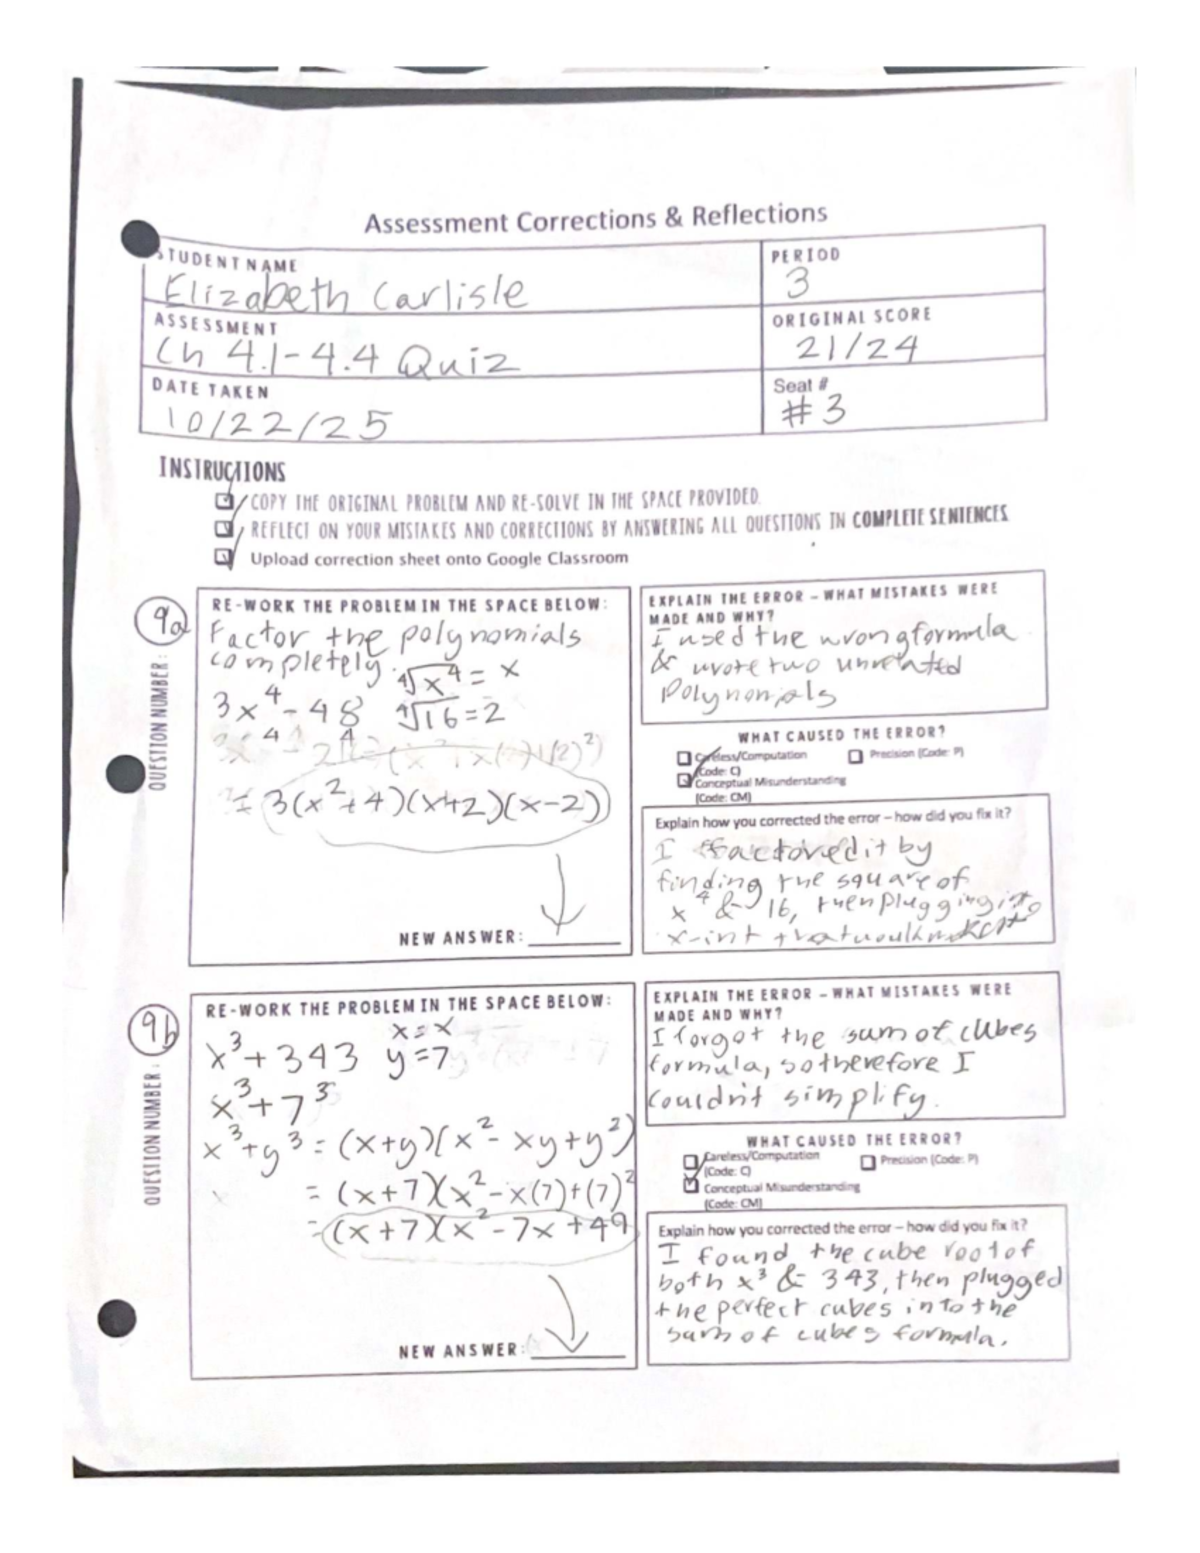 Assessment Corrections & Reflections
STUDENT NAME
Elizabeth Carlisle
PERIOD
3
ASSESSMENT
Ch 4.1-4.4 Quiz
ORIGINAL SCORE
21/24
DATE TAKEN
10/22/25
Seat #
#3
INSTRUCTIONS
COPY THE ORIGINAL PROBLEM AND RE-SOLVE IN THE SPACE PROVIDED.
REFLECT ON YOUR MISTAKES AND CORRECTIONS BY ANSWERING ALL QUESTIONS IN COMPLETE SENTENCES
Upload correction sheet onto Google Classroom
QUESTION NUMBER: 9a
RE-WORK THE PROBLEM IN THE SPACE BELOW:
Factor the polynomials
completely.
∜x⁴ = x
3x⁴ - 48 ∜16 = 2
= 3(x²+4)(x+2)(x-2)
NEW ANSWER:
EXPLAIN THE ERROR – WHAT MISTAKES WERE
MADE AND WHY?
I used the wrong formula
& wrote two unrelated
polynomials
WHAT CAUSED THE ERROR?
Careless/Computation
(Code: C)
Precision (Code: P)
Conceptual Misunderstanding
(Code: CM)
Explain how you corrected the error – how did you fix it?
I factored it by
finding the square of
x⁴ & 16, then plugging into
x-int that
QUESTION NUMBER: 9b
RE-WORK THE PROBLEM IN THE SPACE BELOW:
x=x
x³+343 y=7
x³+7³
x³+y³ = (x+y)(x²-xy+y²)
= (x+7)(x²-x(7)+(7)²
= (x+7)(x²-7x+49
NEW ANSWER:
EXPLAIN THE ERROR – WHAT MISTAKES WERE
MADE AND WHY?
I forgot the sum of cubes
formula, so therefore I
couldn't simplify.
WHAT CAUSED THE ERROR?
Careless/Computation
(Code: C)
Precision (Code: P)
Conceptual Misunderstanding
(Code: CM)
Explain how you corrected the error – how did you fix it?
I found the cube root of
both x³ & 343, then plugged
the perfect cubes into the
sum of cubes formula.